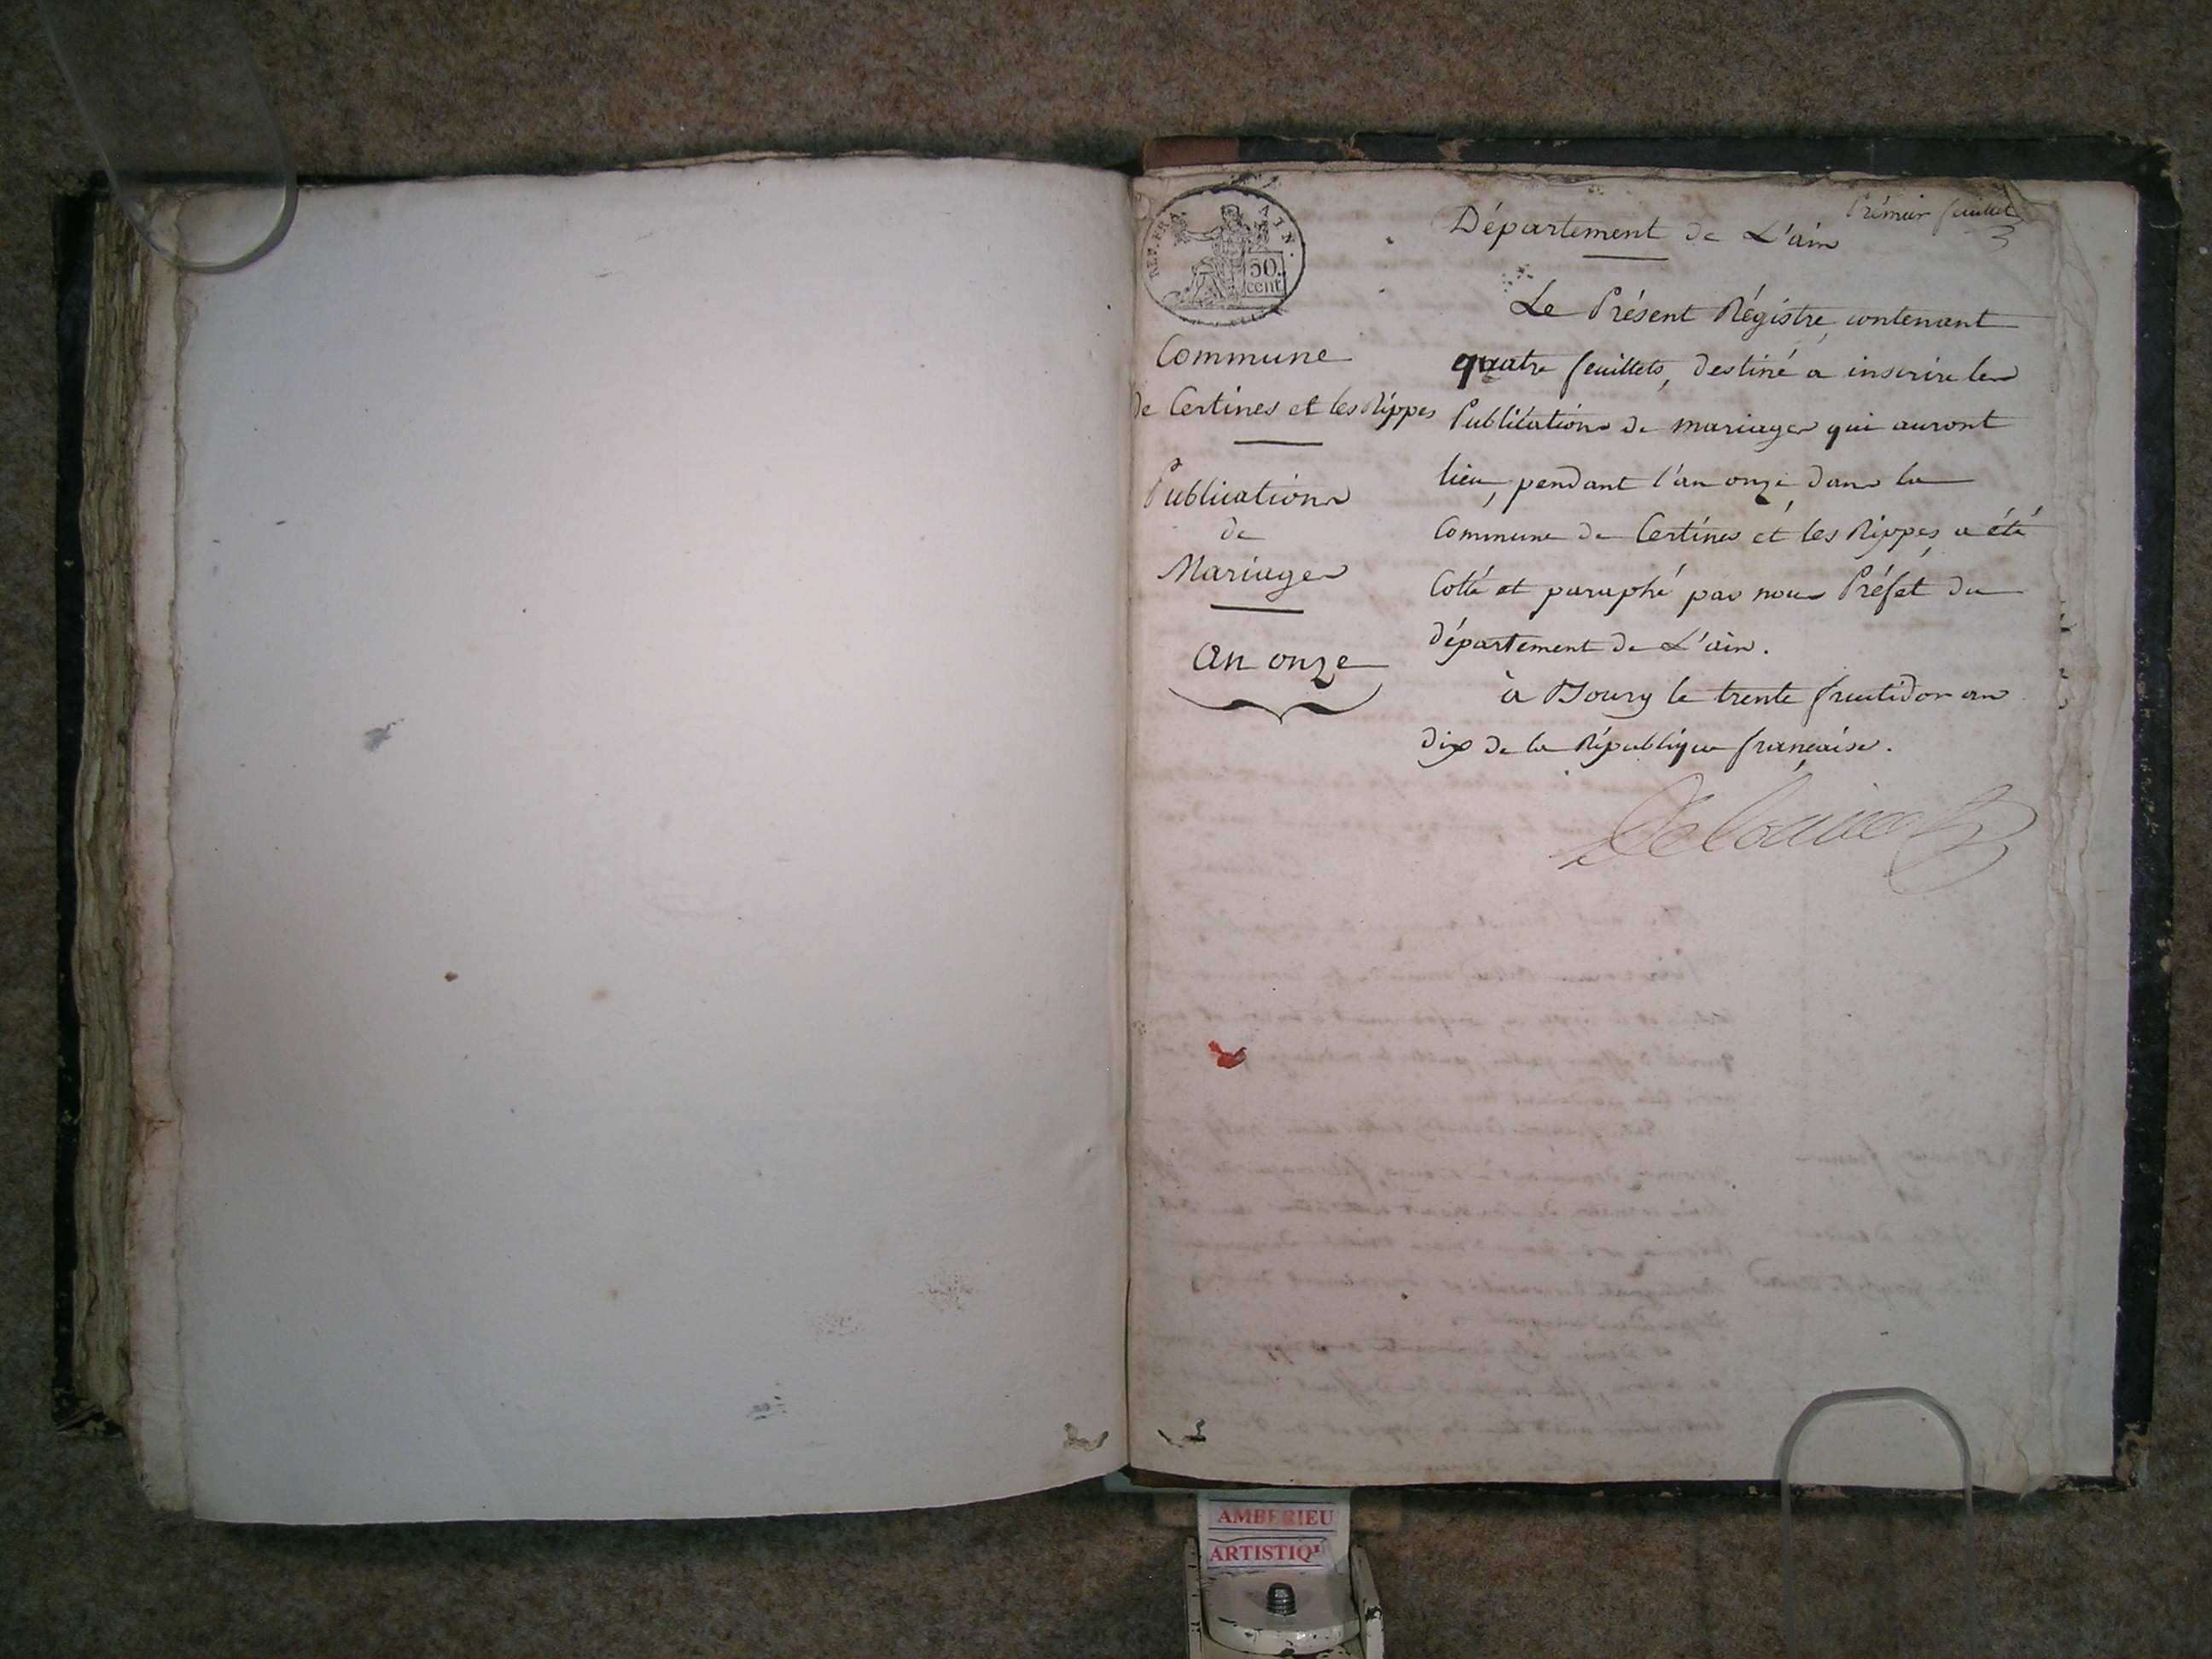 Prémier feuillet
Département de L'ain
REP. FRA.
AIN.
50.
cent.
Commune
de Certines et les Rippes
Publications
de
Mariages
an onze
Le Présent Régistre, contenant
quatre feuillets, destiné a inscrire les
Publications de mariages qui auront
lieu, pendant l'an onze, dans la
Commune de Certines et les Rippes, a été
Cotté et paraphé par nous Préfet du
département de L'ain.
à Bourg le trente fructidor an
dix de la République française.
AMBERIEU
ARTISTIQ